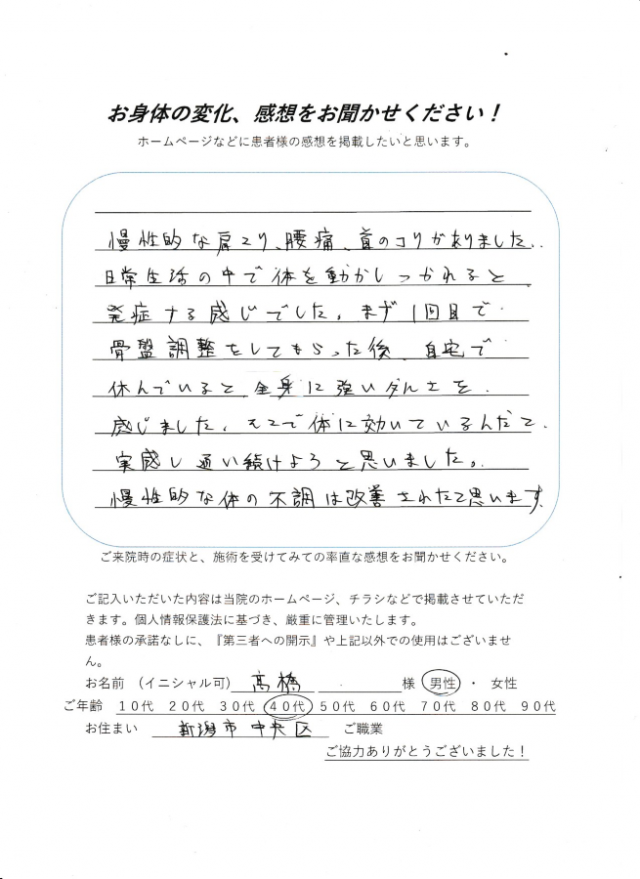 お身体の変化、感想をお聞かせください！
ホームページなどに患者様の感想を掲載したいと思います。
慢性的な肩こり、腰痛、首のコリがありました。
日常生活の中で体を動かしつかれると
発症する感じでした。まず1回目で
骨盤調整をしてもらった後、自宅で
休んでいると全身に強いダルさを
感じました。そこで体に効いているんだと
実感し通い続けようと思いました。
慢性的な体の不調は改善されたと思います。
ご来院時の症状と、施術を受けてみての率直な感想をお聞かせください。
ご記入いただいた内容は当院のホームページ、チラシなどで掲載させていただ
きます。個人情報保護法に基づき、厳重に管理いたします。
患者様の承諾なしに、『第三者への開示』や上記以外での使用はございませ
ん。
お名前 （イニシャル可） 高橋 様 男性 ・ 女性
ご年齢 10代 20代 30代 40代 50代 60代 70代 80代 90代
お住まい 新潟市中央区 ご職業
ご協力ありがとうございました！